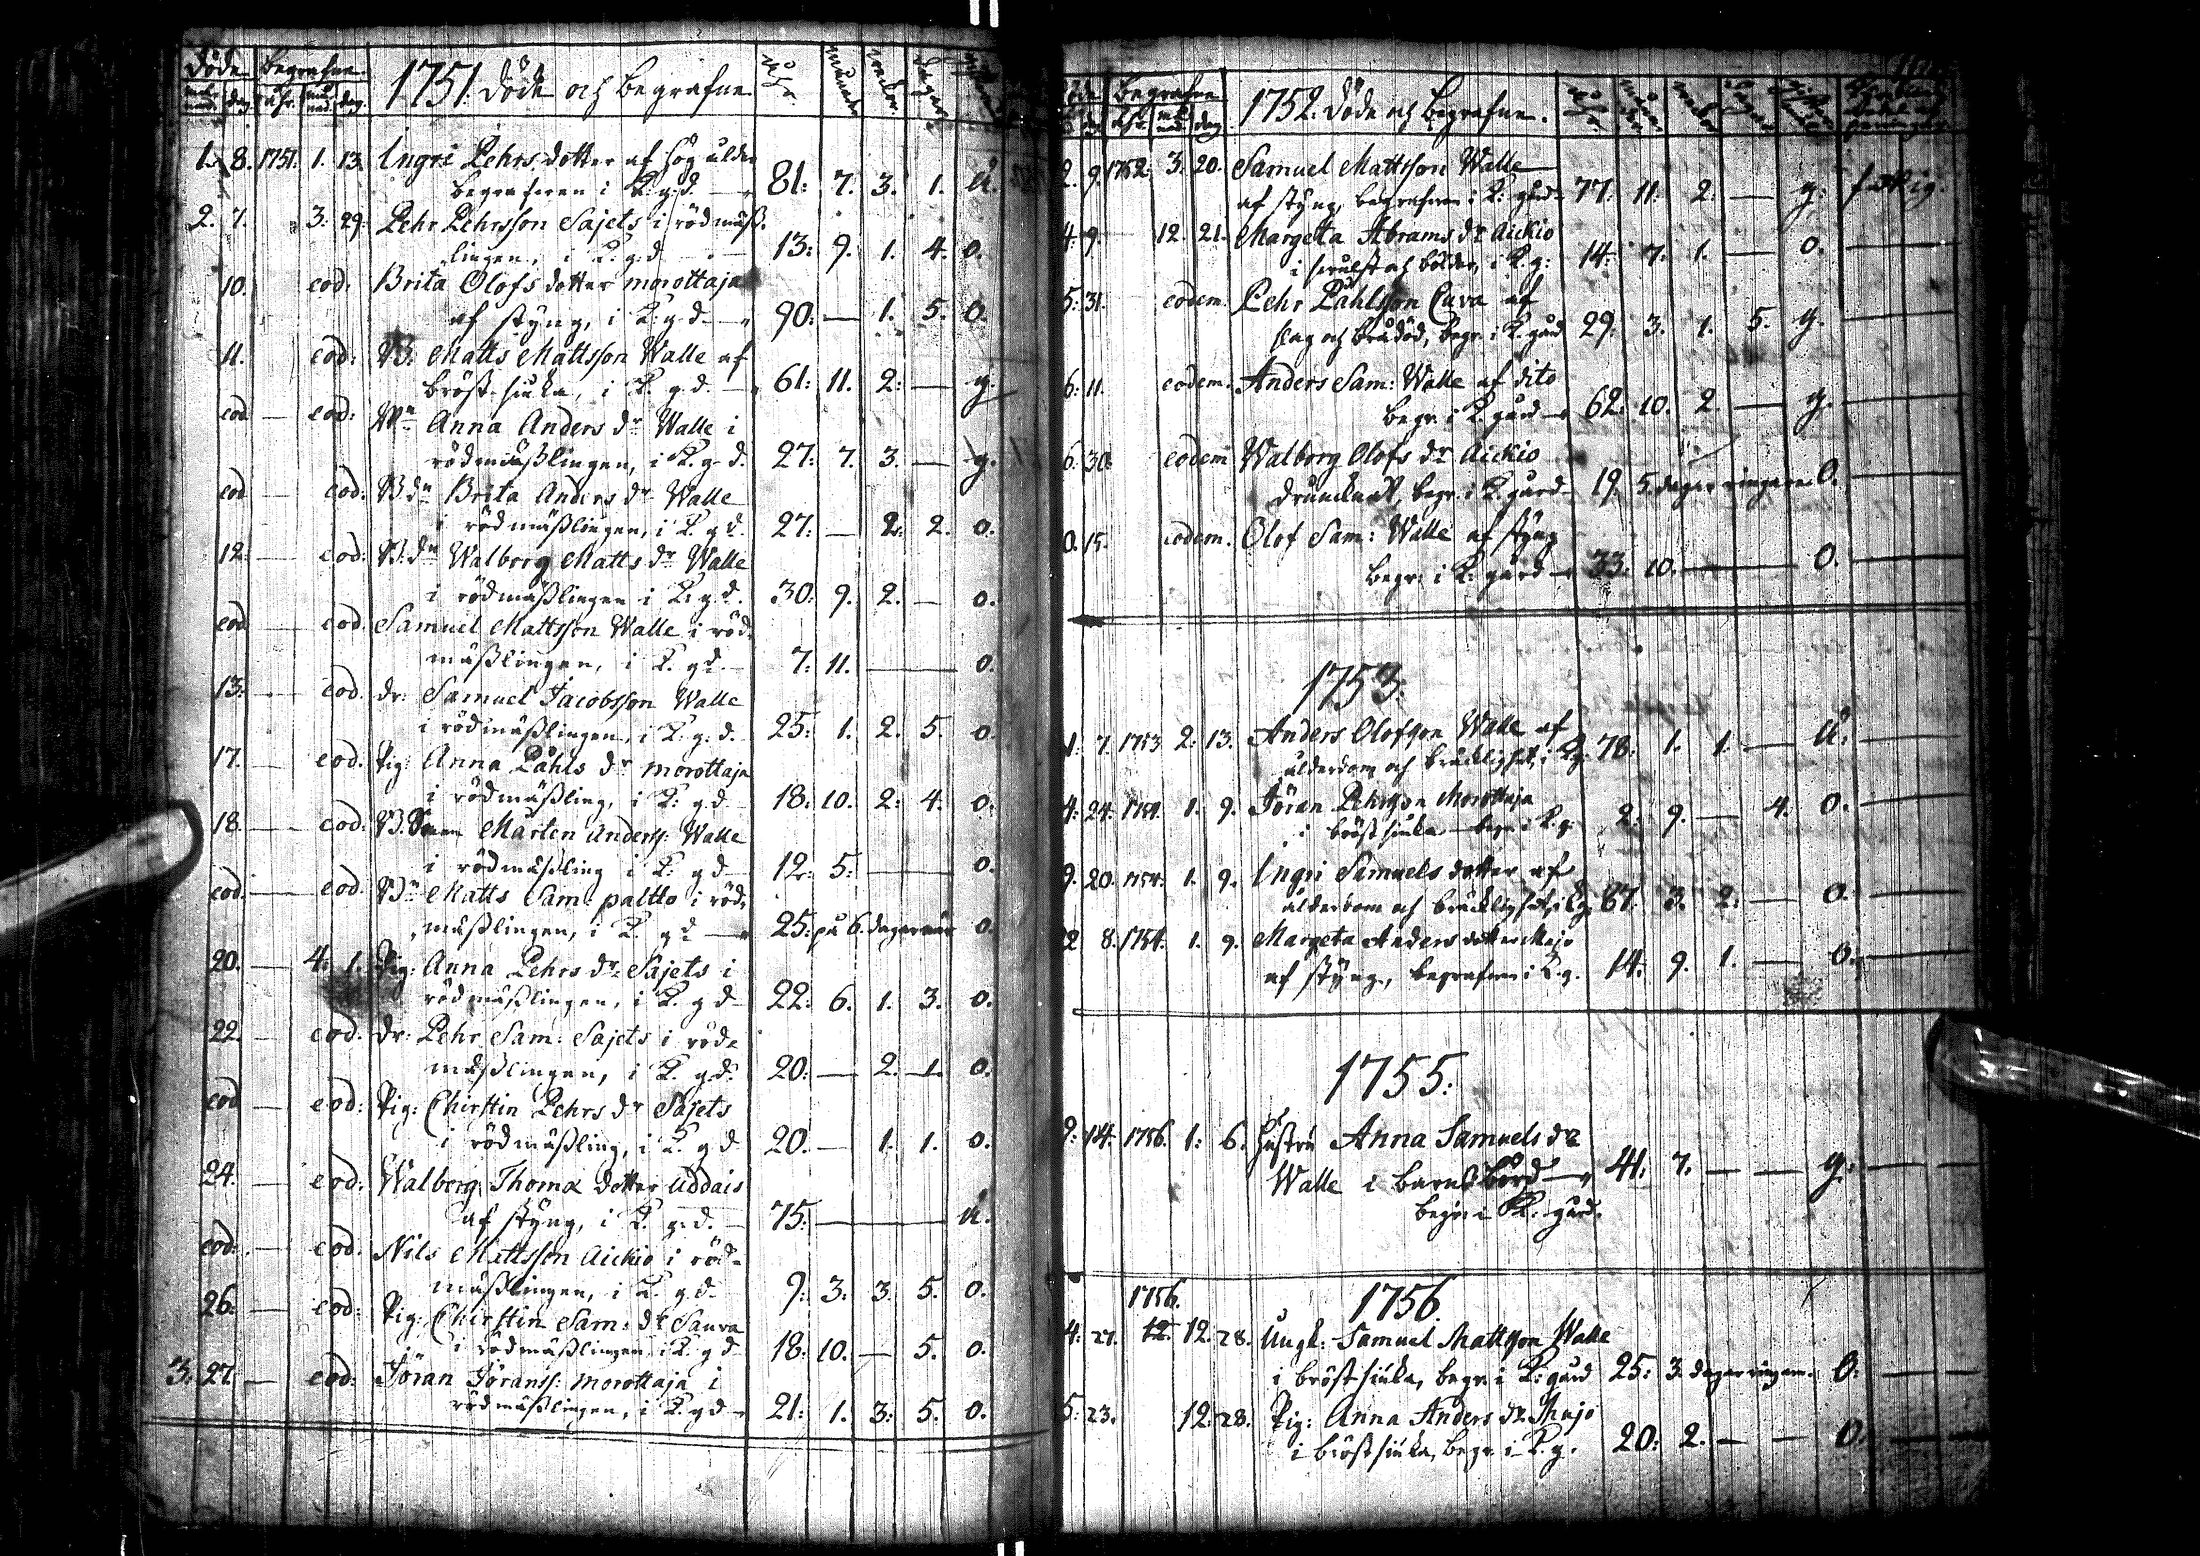 Döde Begrafne 1751. Döde och Begrafne
månad dag åhr månad dag
1. 8. 1751. 1. 13. Ingri Pehrs dotter af hög ålder
begrafven i K. g.d. 81: 7. 3. 1. Ä.
2. 7. 3: 29. Pehr Pehrsson Sajets i rödmäß-
lingen, i K. g.d. 13: 9. 1. 4. O.
10. eod. Brita Olofs dotter Morottaja
af styng, i K. g.d. 90: — 1. 5. O.
11. eod: B: Matts Mattsson Walle af
bröstsiuka, i K. g.d. 61: 11. 2: — g.
eod — eod: Anna Anders dr Walle i
rödmäßlingen, i K. g.d. 27: 7. 3. — g.
eod — eod: Brita Anders dr Walle
i rödmäßlingen, i K. g.d. 27: — 2. 2. O.
12. eod: Walborg Matts dr Walle
i rödmäßlingen i K. g.d. 30: 9. 2. — O.
eod — eod. Samuel Mattsson Walle i röd-
mäßlingen, i K. g.d. 7: 11. — O.
13. — eod. dr: Samuel Jacobsson Walle
i rödmäßlingen, i K. g.d. 25: 1. 2. 5. O.
17. — eod. Pig: Anna Påhls dr Morottaja
i rödmäßling, i K. g.d. 18: 10. 2: 4. O.
18. — eod: Mårten Anderss: Walle
i rödmäßling i K. g.d. 12: 5: — O.
eod. — eod. Matts Sam: Paltto i röd-
mäßlingen, i K. g.d. 25: på 6. dagar när O.
20. — 4. 1. Pig: Anna Pehrs dr Sajets i
rödmäßlingen, i K. g.d. 22: 6. 1. 3. O.
22. — eod. dr: Pehr Sam: Sajets i röd-
mäßlingen, i K. g.d. 20: — 2. 1. O.
eod — eod: Pig: Chirstin Pehrs dr Sajets
i rödmäßling, i K. g.d. 20. — 1. 1. O.
24. — eod: Walborg Thomæ dotter Uddais
af styng, i K. g.d. 75: — Ä.
eod: — eod. Nils Mattsson Aickio i röd-
mäßlingen, i K. g.d. 9: 3. 3. 5. O.
26: — eod: Pig: Chirstin Sam: dr Saura
i rödmäßlingen i K. g.d. 18: 10. — 5. O.
3. 27. — eod: Jöran Jöranss: Morottaja i
rödmäßlingen, i K. g.d. 21: 1. 3: 5. O.
Begrafne 1752. Döde och Begrafne.
2. 9. 1752. 3. 20. Samuel Mattsson Walle
af styng, begrafven i K: gård 77: 11. 2. — g. fattig.
4. 9. 12. 21. Margeta Abrams dr Aickio
i K. g: 14: 7. 1. — O.
5. 31. eodem Pehr Påhlsson Cuva af
slag och brådöd, begr. i K. gård 29. 3. 1. 5. g.
6. 11. eodem. Anders Sam: Walle af dito
begr. i K. gård 62. 10. 2. — g.
6. 30. eodem Walborg Olofs dr Aickio
drunknat, begr. i K. gård 19. 5. dagar ringare O.
0. 15. eodem. Olof Sam: Walle af styng
begr: i K: gård 33. 10. — O.
1753:
1. 7. 1753 2. 13. Anders Olofson Walle af
ålderdom och bräcklighet, i K.g. 78: 1. 1. — Ä.
4. 24. 1754. 1. 9. Jöran Pehrsson Morottaja
i bröstsiuka begr. i K. g. 2: 9. — 4. O.
9. 20. 1754. 1. 9. Ingri Samuels dotter af
ålderdom och bräcklighet, i K.g. 87. 3. 2: — O.
22 8. 1754. 1. 9. Margeta Anders dotter Majo
af styng, begrafven i K. g. 14: 9. 1. — O.
1755:
9. 14. 1756. 1. 6. Hustru Anna Samuels dr
Walle i barnsbörd 41: 7. — — g.
begr. i K. gård.
1756. 1756
4. 27. 12. 12. 28. Ungk: Samuel Mattson Walle
i bröstsiuka, begr. i K. gård 25: 3. dagar ringare. O.
5. 23. 12. 28. Pig: Anna Anders dr Majo
i bröstsiuka, begr. i K. g. 20: 2. — — O.